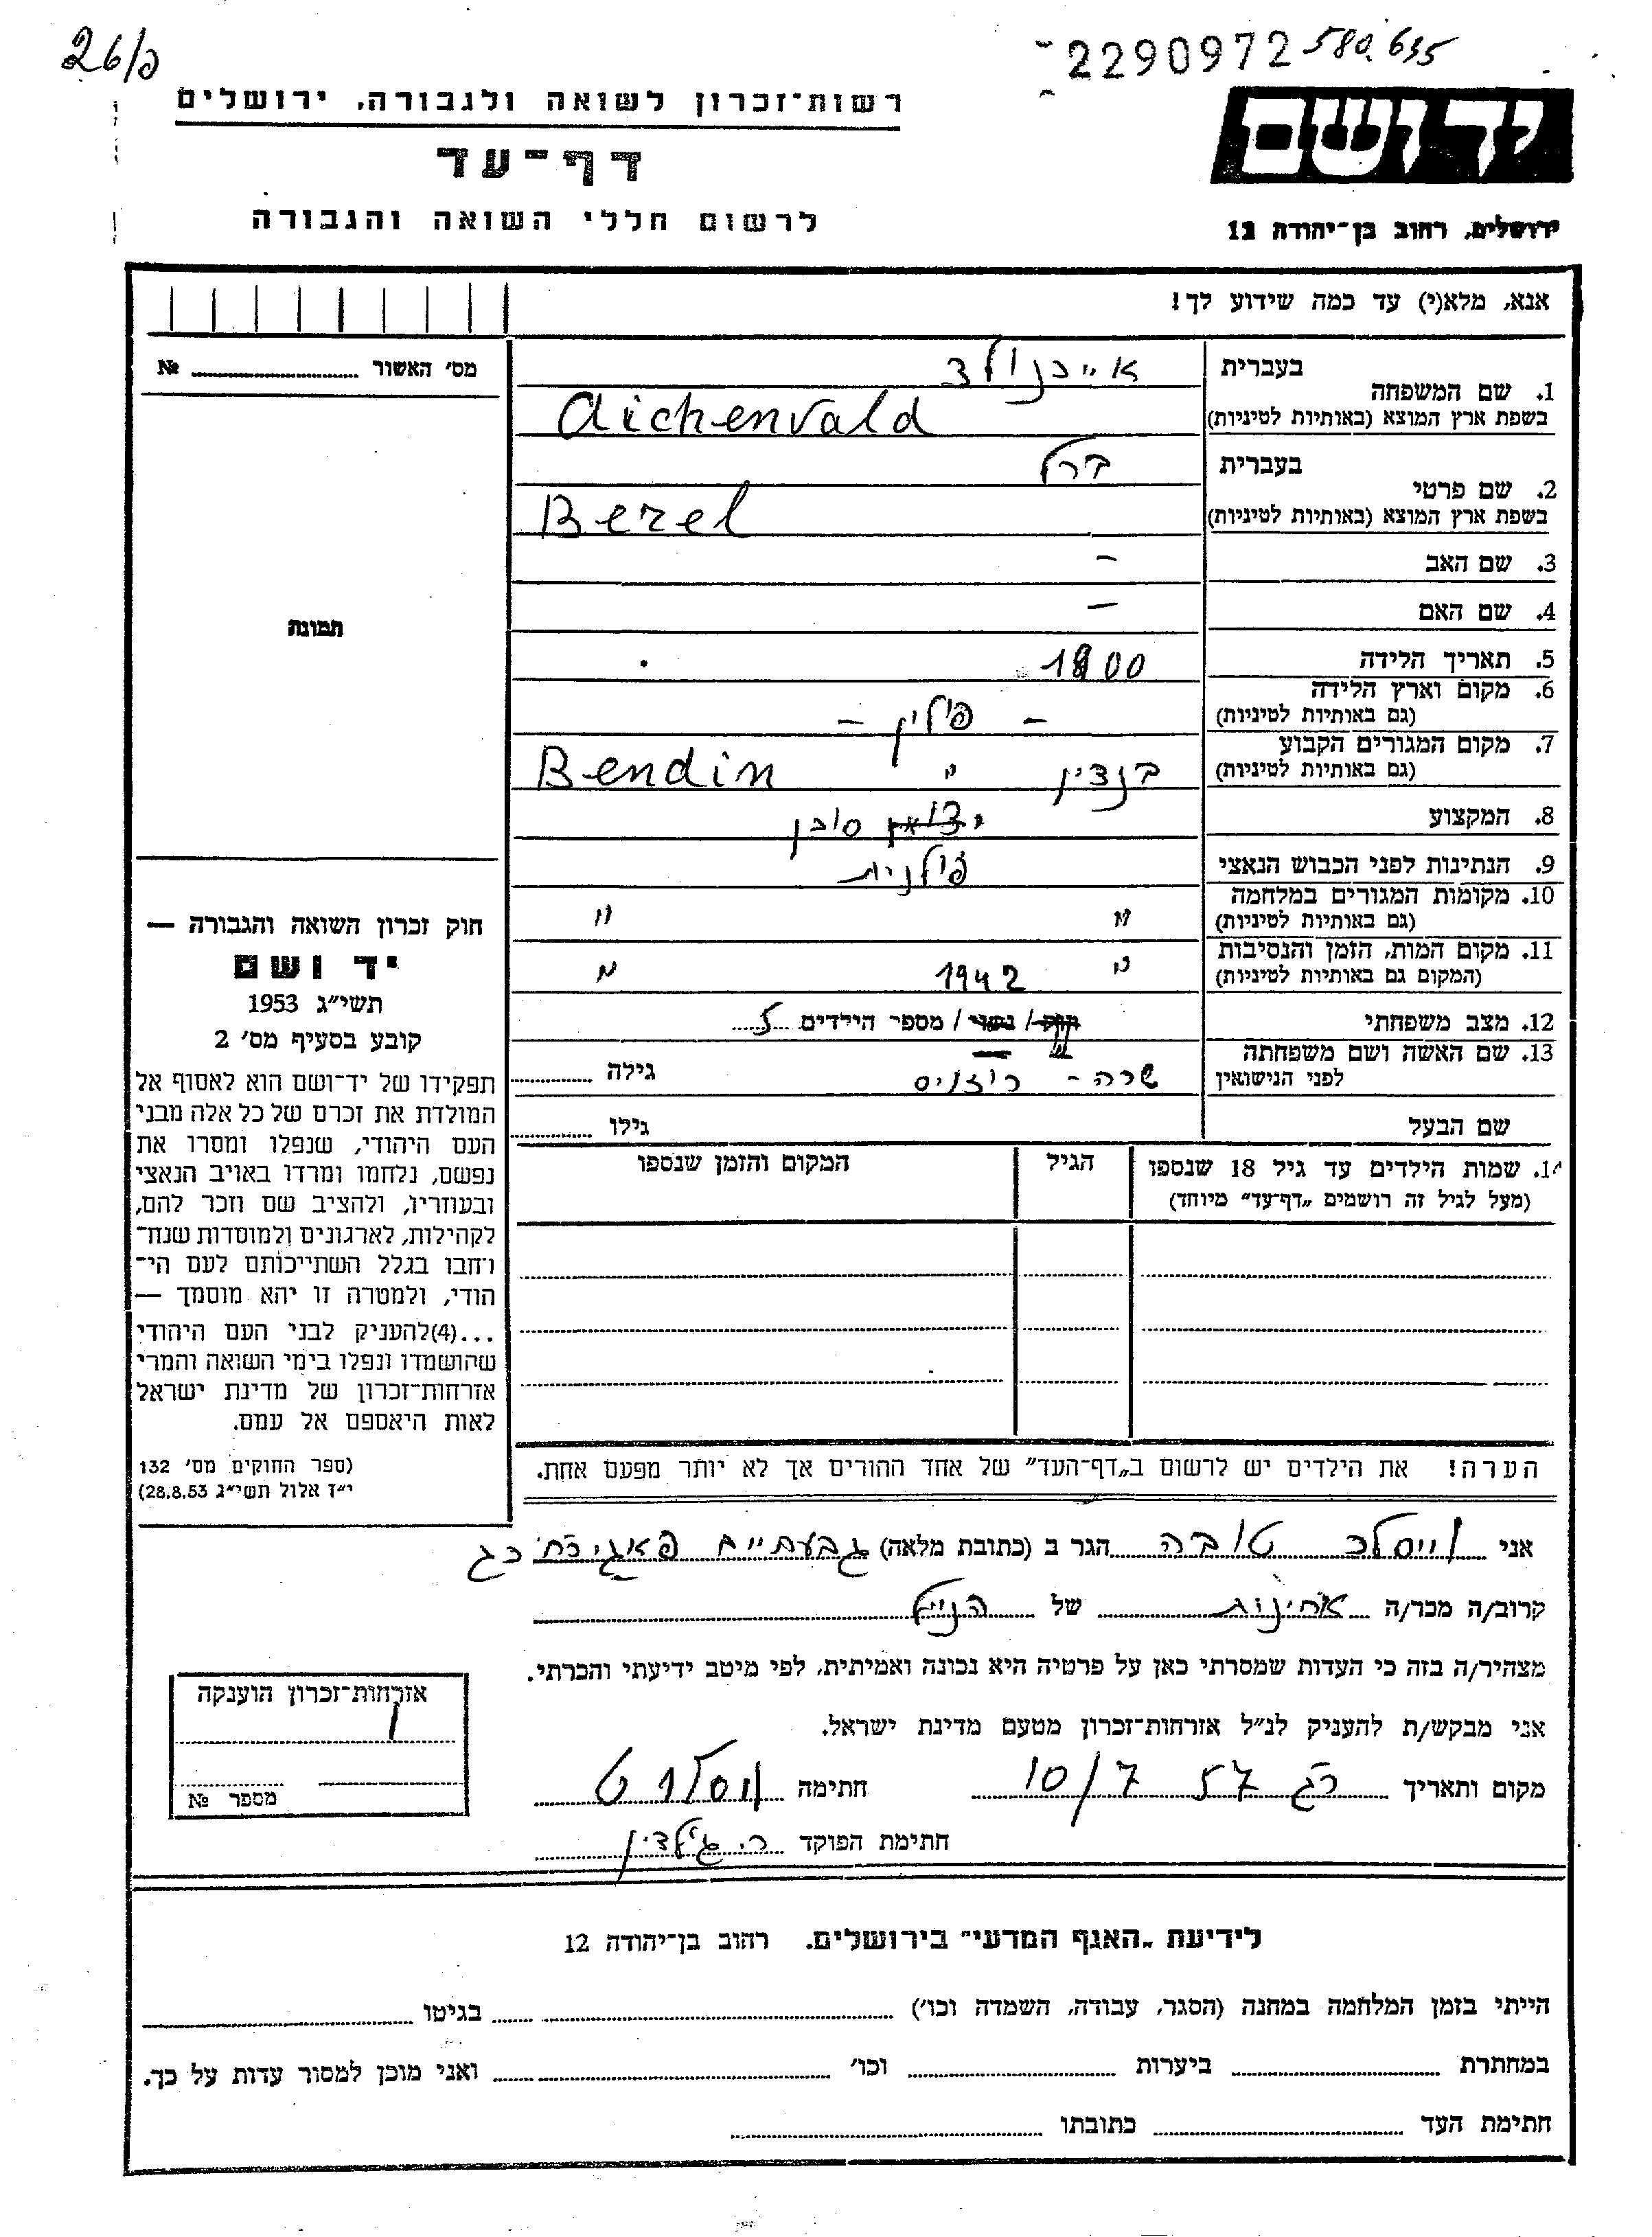 26/פ
2290972 580.635
רשות־זכרון לשואה ולגבורה, ירושלים
דף־עד
לרשום חללי השואה והגבורה
ידושם
ירושלים, רחוב בן־יהודה 12
אנא, מלא(י) עד כמה שידוע לך!
מס׳ האשור № ........
תמונה
1. שם המשפחה בעברית אייכנולד
בשפת ארץ המוצא (באותיות לטיניות) Aichenvald
2. שם פרטי בעברית ברל
בשפת ארץ המוצא (באותיות לטיניות) Berel
3. שם האב –
4. שם האם –
5. תאריך הלידה 1900
6. מקום וארץ הלידה
(גם באותיות לטיניות) – פולין –
7. מקום המגורים הקבוע
(גם באותיות לטיניות) בנדין " Bendin
8. המקצוע סוכן
9. הנתינות לפני הכבוש הנאצי פולנית
10. מקומות המגורים במלחמה
(גם באותיות לטיניות) " "
11. מקום המות, הזמן והנסיבות
(המקום גם באותיות לטיניות) " 1942 "
12. מצב משפחתי רוק/ נשוי / מספר הילדים 5
13. שם האשה ושם משפחתה
לפני הנישואין שרה - גילה
שם הבעל גילו
14. שמות הילדים עד גיל 18 שנספו הגיל המקום והזמן שנספו
(מעל לגיל זה רושמים „דף־עד״ מיוחד)
הערה! את הילדים יש לרשום ב„דף־העד״ של אחד ההורים אך לא יותר מפעם אחת.
חוק זכרון השואה והגבורה —
יד ושם
תשי״ג 1953
קובע בסעיף מס׳ 2
תפקידו של יד־ושם הוא לאסוף אל
המולדת את זכרם של כל אלה מבני
העם היהודי, שנפלו ומסרו את
נפשם, נלחמו ומרדו באויב הנאצי
ובעוזריו, ולהציב שם וזכר להם,
לקהילות, לארגונים ולמוסדות שנח־
רחבו בגלל השתייכותם לעם הי־
הודי, ולמטרה זו יהא מוסמך —
...(4)להעניק לבני העם היהודי
שהושמדו ונפלו בימי השואה והמרי
אזרחות־זכרון של מדינת ישראל
לאות היאספם אל עמם.
(ספר החוקים מס׳ 132
י״ז אלול תשי״ג 28.8.53)
אני וייסלר טובה הגר ב (כתובת מלאה) גבעתיים
קרוב/ה מכר/ה אחינות של הנ״ל
מצהיר/ה בזה כי העדות שמסרתי כאן על פרטיה היא נכונה ואמיתית, לפי מיטב ידיעתי והכרתי.
אני מבקש/ת להעניק לנ״ל אזרחות־זכרון מטעם מדינת ישראל.
מקום ותאריך רג 57 10/7 חתימה וסלר ט
חתימת הפוקד
אזרחות־זכרון הוענקה
מספר №
לידיעת „האגף המדעי״ בירושלים. רחוב בן־יהודה 12
הייתי בזמן המלחמה במחנה (הסגר, עבודה, השמדה וכו׳) בגיטו
במחתרת ביערות וכו׳ ואני מוכן למסור עדות על כך.
חתימת העד כתובתו